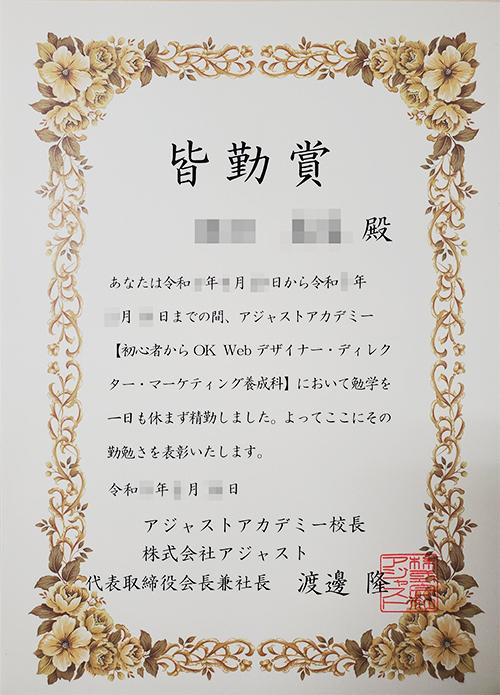 皆勤賞
殿
あなたは令和 年 月 日から令和 年
月 日までの間、アジャストアカデミー
【初心者からOK Webデザイナー・ディレク
ター・マーケティング養成科】において勉学を
一日も休まず精勤しました。よってここにその
勤勉さを表彰いたします。
令和 年 月 日
アジャストアカデミー校長
株式会社アジャスト
代表取締役会長兼社長 渡邊 隆
株式会社
アジャスト